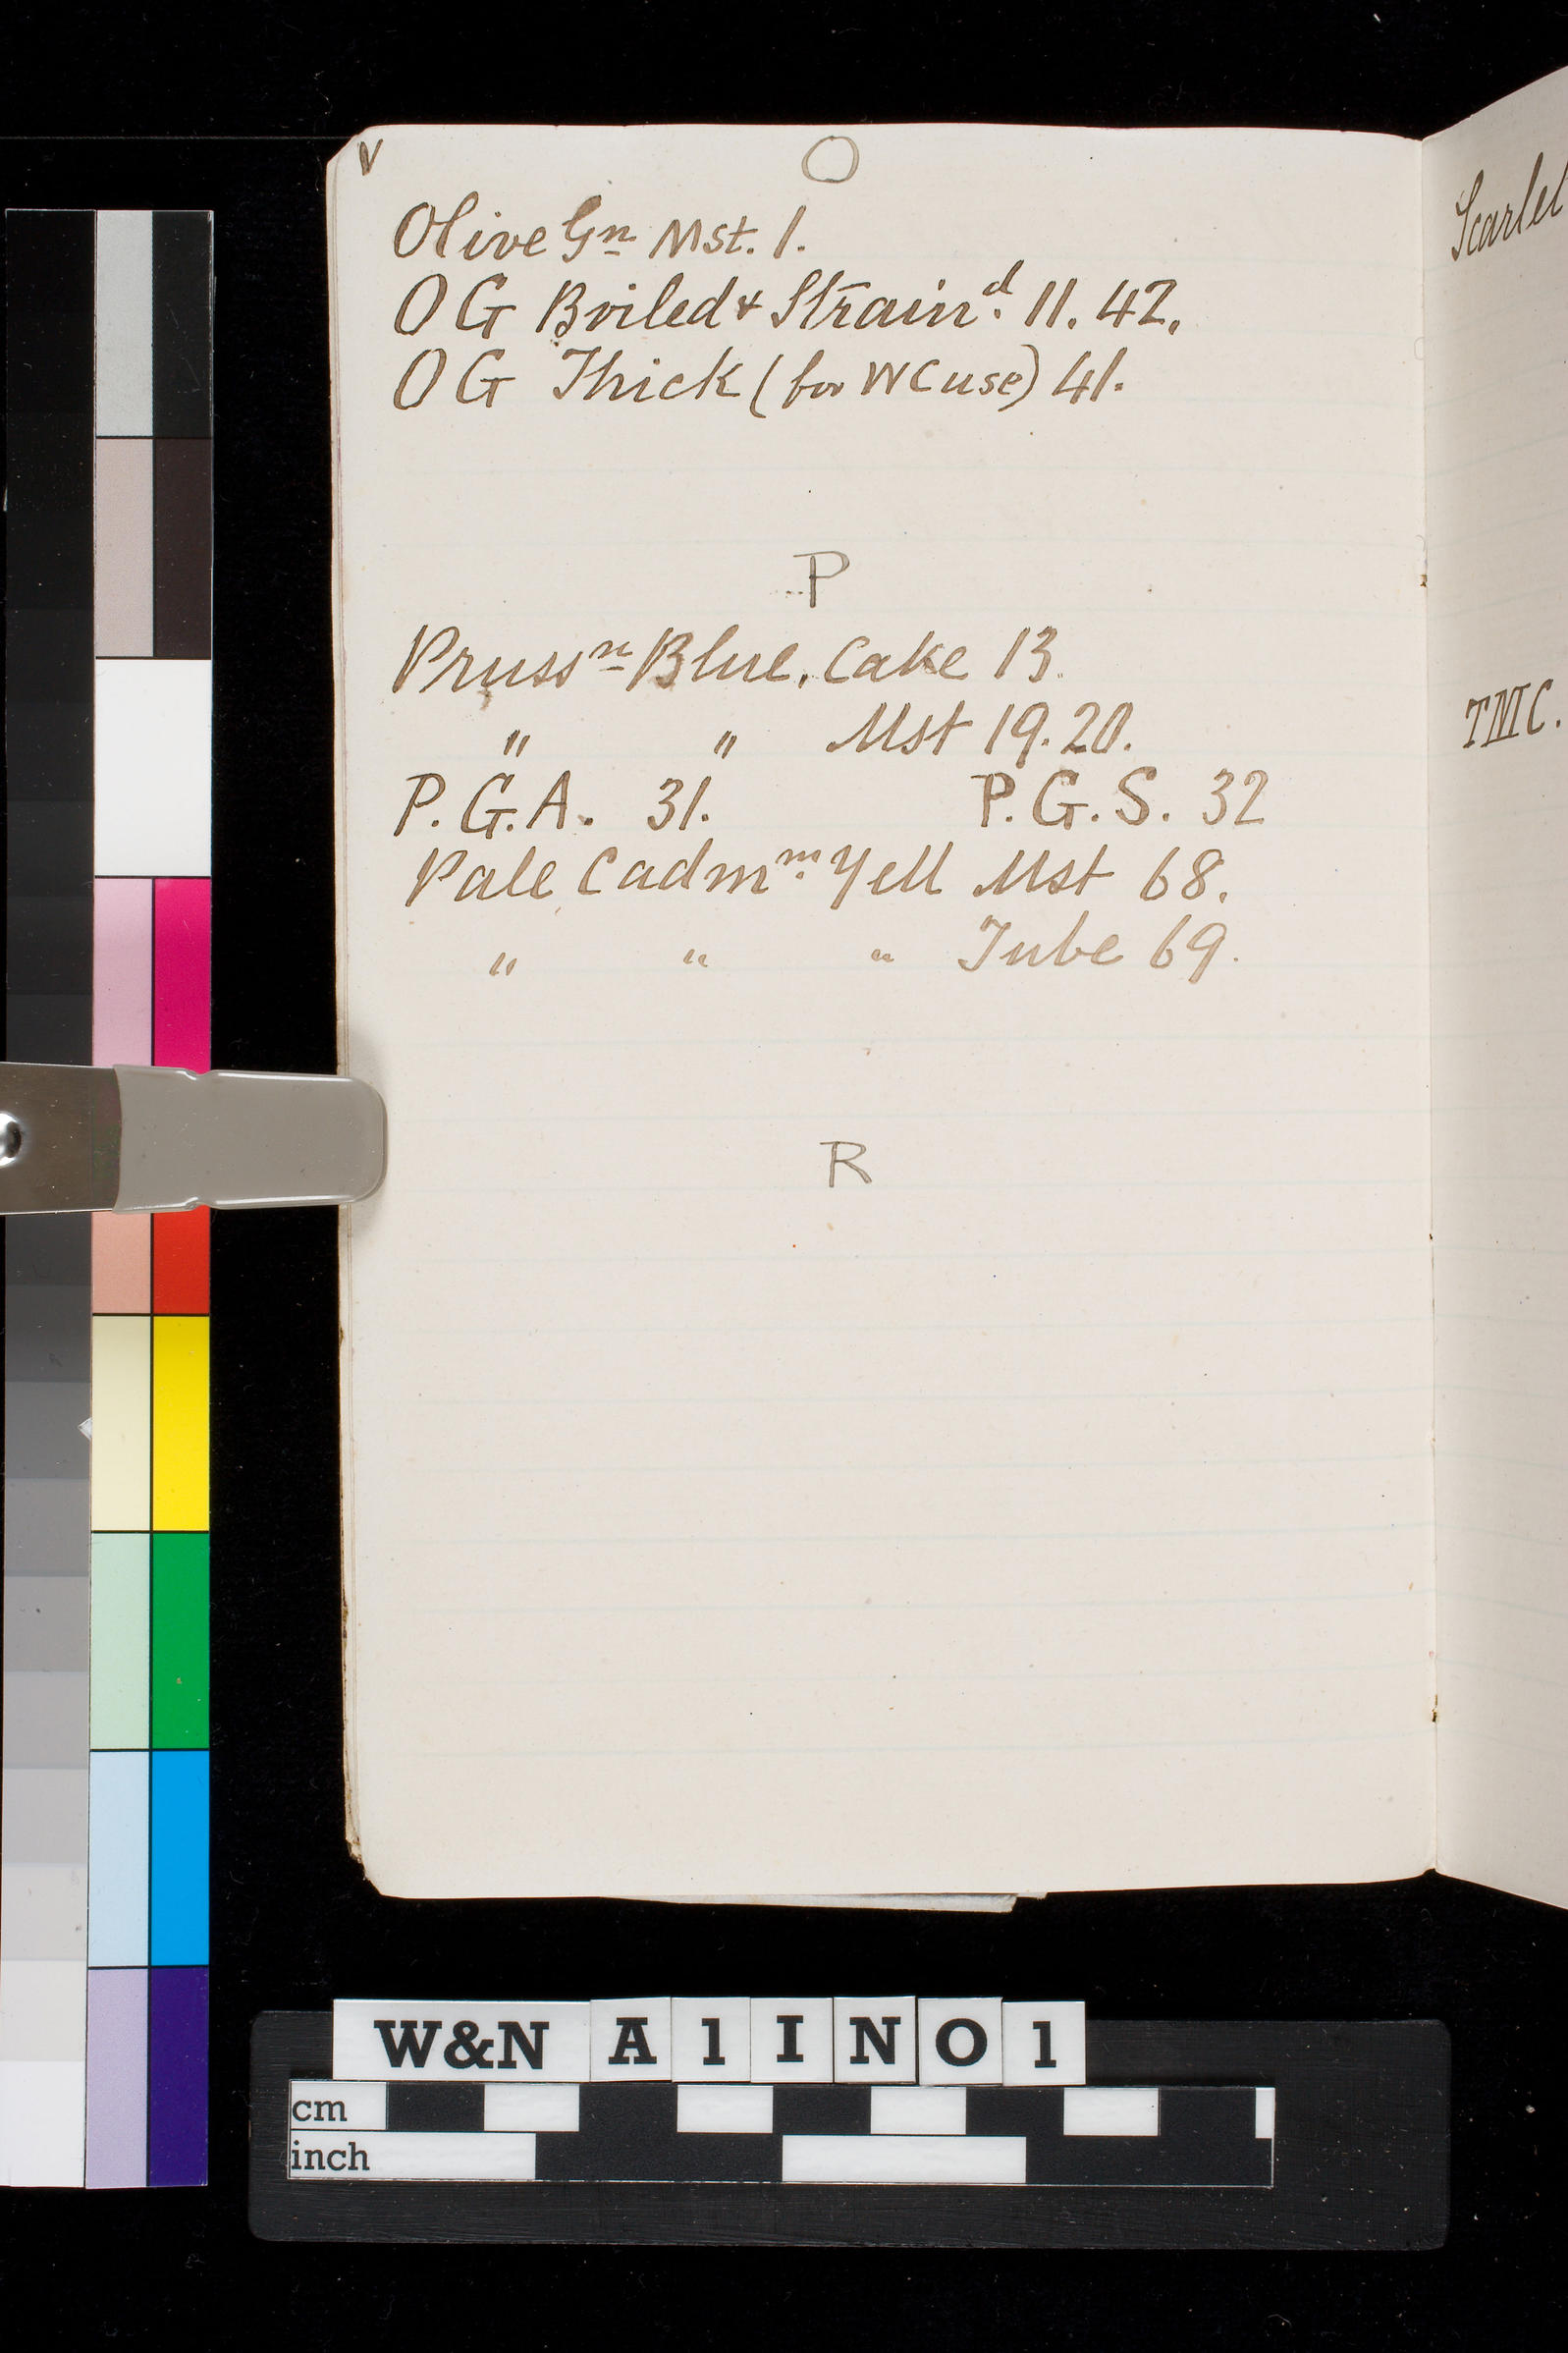 V
O
Olive Gn Mst. 1.
OG Boiled & Straind. 11. 42.
OG Thick (for WC use) 41.
P
Prussn Blue. Cake 13.
" " Mst 19. 20.
P.G.A. 31. P.G.S. 32
Pale Cadmm. Yell Mst 68.
" " " Tube 69.
R
Scarlet
TMC.
W&N A1INO1
cm
inch